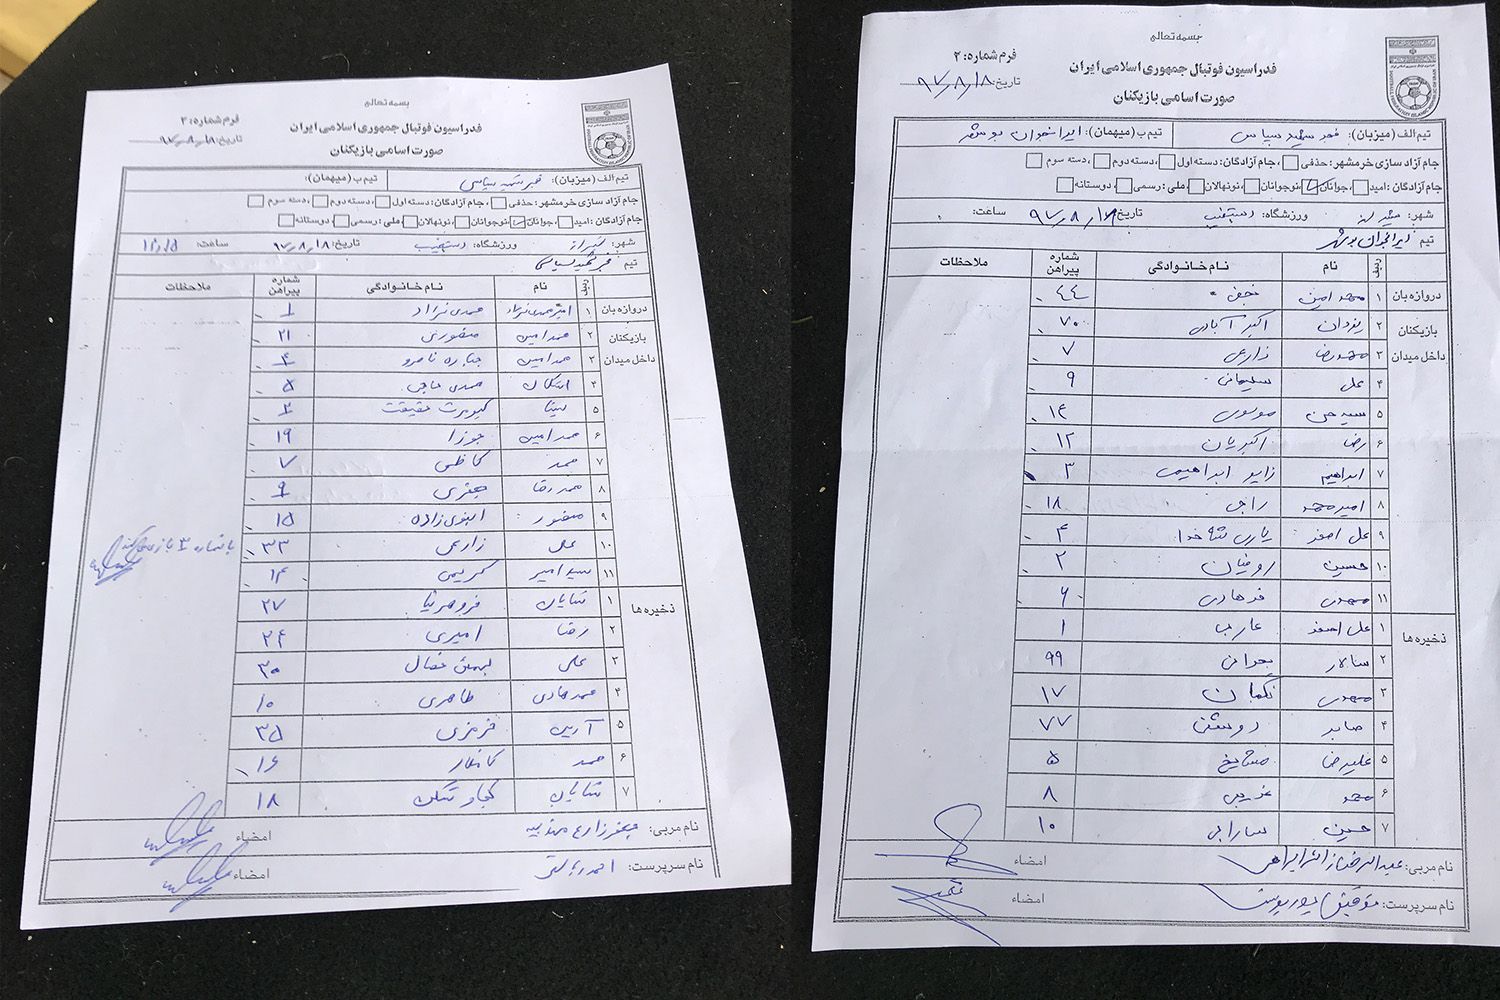 بسمه تعالی
فدراسیون فوتبال جمهوری اسلامی ایران
فرم شماره: ۲
صورت اسامی بازیکنان
تاریخ: ۹۷/۸/۱۸
تیم الف (میزبان): فجر شهید سپاسی تیم ب (میهمان):
جام آزاد سازی خرمشهر: حذفی ، جام آزادگان: دسته اول ، دسته دوم ، دسته سوم
جام آزادگان: امید ، جوانان ، نوجوانان ، نونهالان ، ملی: رسمی ، دوستانه
شهر: شیراز ورزشگاه: دستغیب تاریخ: ۹۷/۸/۱۸ ساعت:
تیم فجر شهید سپاسی
ردیف نام نام خانوادگی شماره پیراهن ملاحظات
دروازه بان ۱ محمدی نژاد ۱
بازیکنان ۲ محمد امین منصوری ۲۱
داخل میدان ۳ محمد امین ۴
۴ اشکان محمدی حاجی ۵
۵ سینا کیومرث حقیقت
۶ محمد امین جوزا ۱۹
۷ محمد کاظمی ۷
۸ محمد رضا جعفری ۹
۹ منصور ۱۵
۱۰ علی زارعی ۳۳
۱۱ سید امیر کریمی ۱۴
ذخیره ها ۱ شایان ۲۷
۲ رضا امیری ۲۴
۳ علی بهمئی فضال ۳۰
۴ محمد هادی طاهری ۱۰
۵ آرین قرمزی ۳۵
۶ محمد ۱۶
۷ شایان ۱۸
نام مربی: جعفر زارع امضاء
نام سرپرست: احمد امضاء
بسمه تعالی
فدراسیون فوتبال جمهوری اسلامی ایران
فرم شماره: ۲
صورت اسامی بازیکنان
تاریخ: ۹۷/۸/۱۸
تیم الف (میزبان): فجر شهید سپاسی تیم ب (میهمان): ایرانجوان بوشهر
جام آزاد سازی خرمشهر: حذفی ، جام آزادگان: دسته اول ، دسته دوم ، دسته سوم
جام آزادگان: امید ، جوانان ، نوجوانان ، نونهالان ، ملی: رسمی ، دوستانه
شهر: شیراز ورزشگاه: دستغیب تاریخ: ۹۷/۸/۱۸ ساعت:
تیم ایرانجوان بوشهر
ردیف نام نام خانوادگی شماره پیراهن ملاحظات
دروازه بان ۱ محمد امین نجفی ۴۴
بازیکنان ۲ یزدان اکبر آبادی ۷۰
داخل میدان ۳ محمدرضا زارعی ۷
۴ علی سلیمانی ۹
۵ موسوی ۱۴
۶ رضا اکبریان ۱۲
۷ ابراهیم زایر ابراهیمی ۳
۸ امیر محمد راجی ۱۸
۹ علی اصغر ۴
۱۰ حسین ۲
۱۱ مهدی فرهادی ۶
ذخیره ها ۱ علی اصغر ۱
۲ سالار بحرانی ۹۹
۳ مهدی نگهبان ۱۷
۴ صابر روستا ۷۷
۵ علیرضا مشایخ ۵
۶ محمد غریبی ۸
۷ حسین سارابی ۱۰
نام مربی: عبدالرضا زائر ابراهیمی امضاء
نام سرپرست: توفیق امضاء